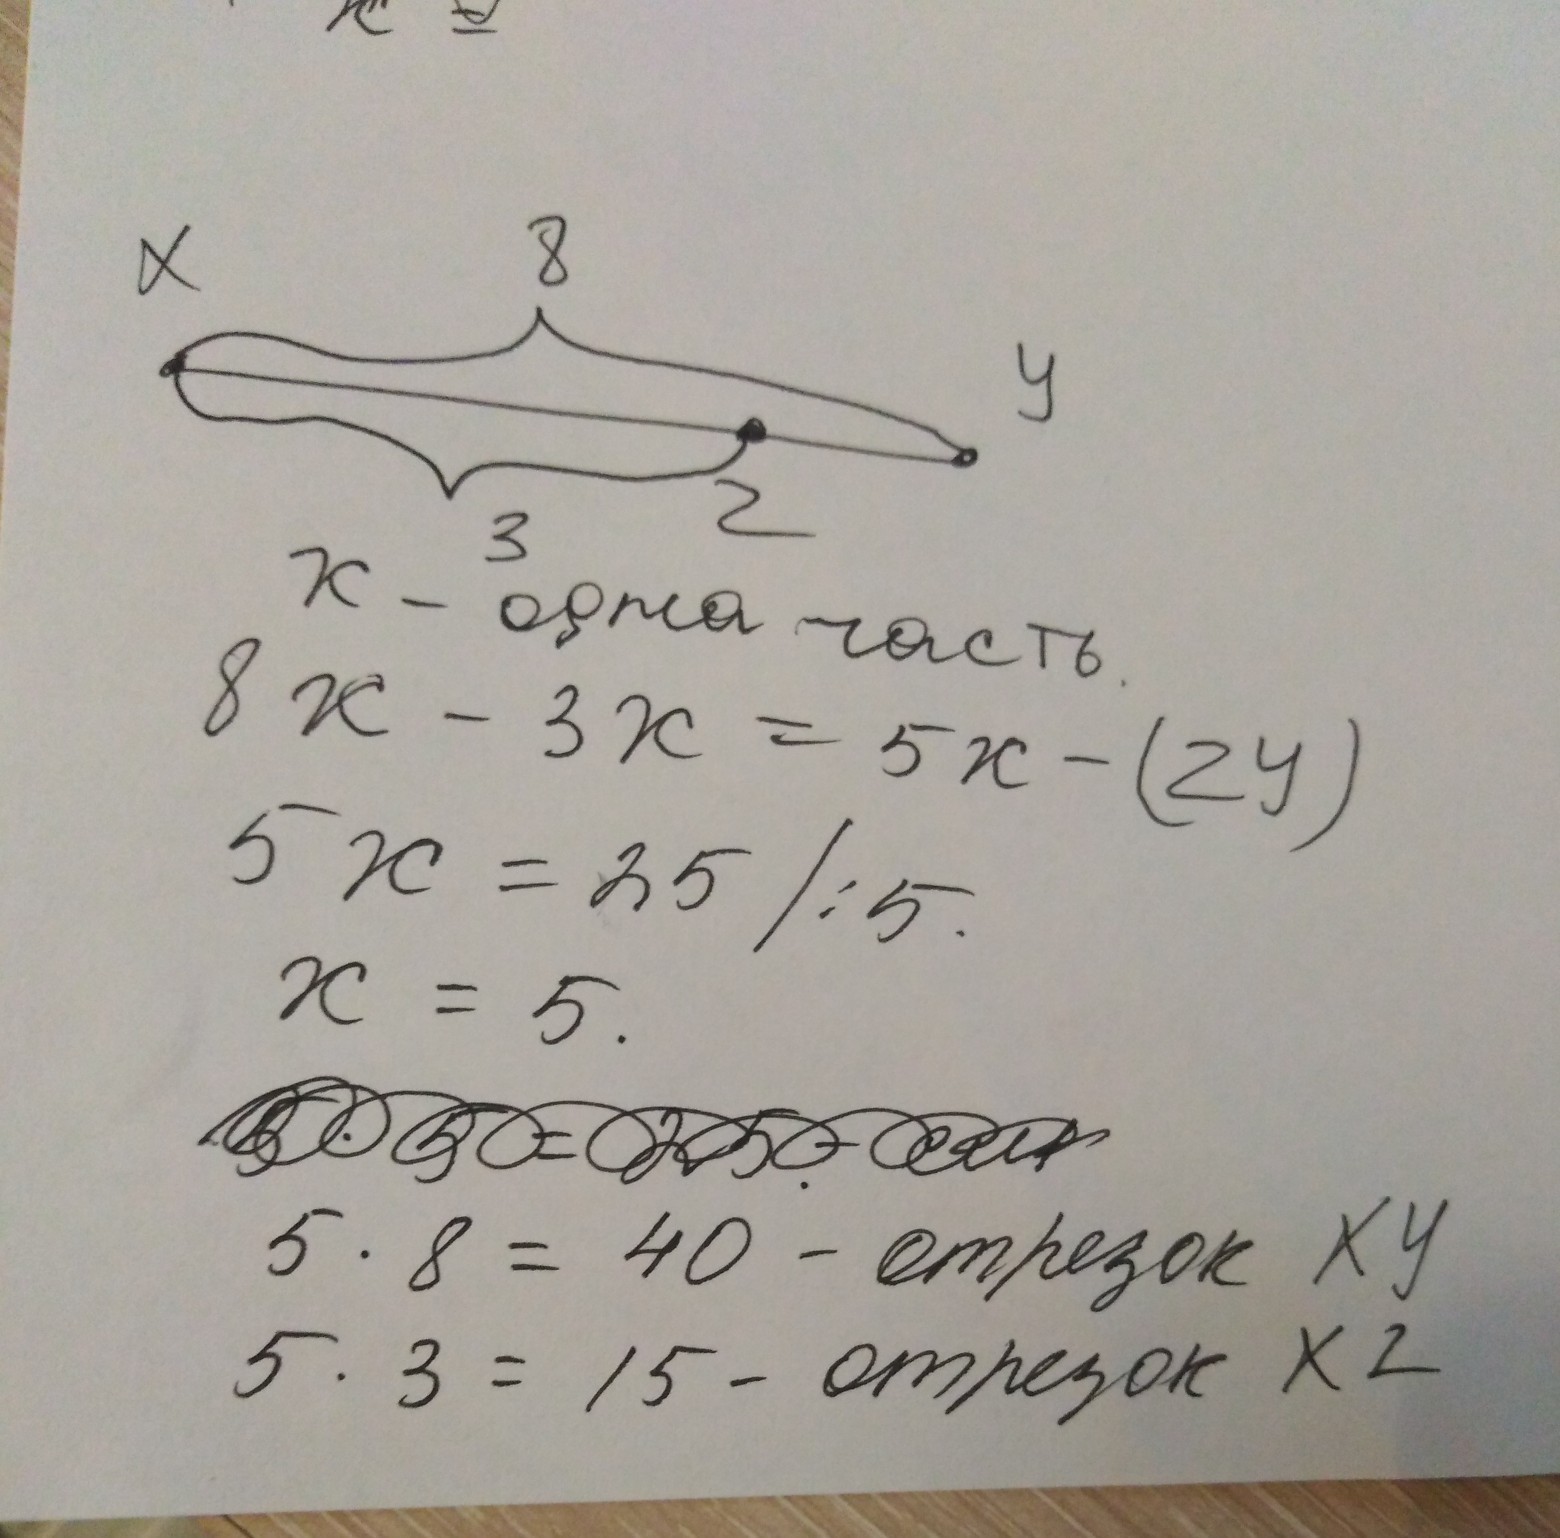 x =
X 8 y
3 Z
x - одна часть.
8x - 3x = 5x - (ZY)
5x = 25 /:5.
x = 5.
5 · 8 = 40 - отрезок XY
5 · 3 = 15 - отрезок XZ